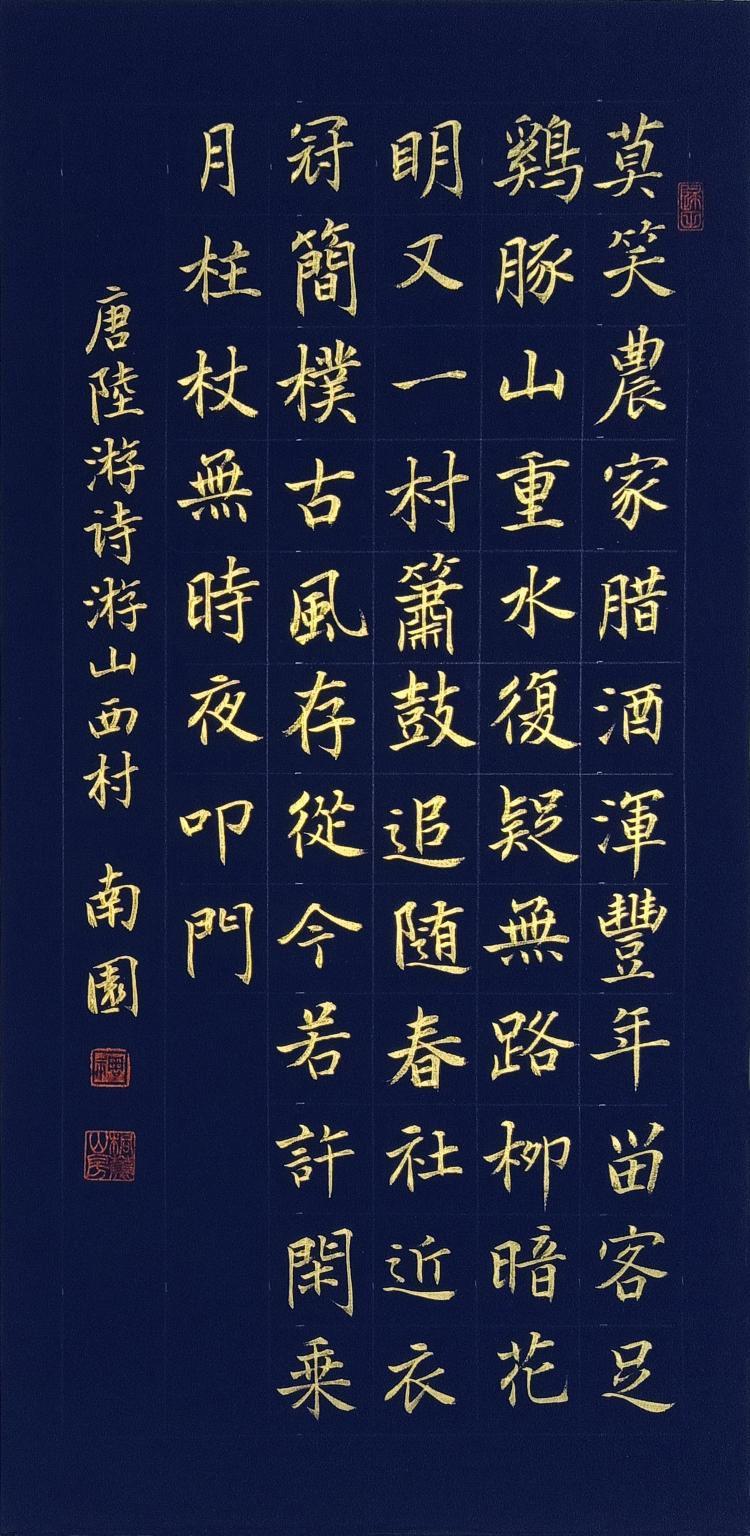 莫笑農家腊酒渾豐年畱客足
鷄豚山重水復疑無路柳暗花
明又一村簫鼓追随春社近衣
冠簡樸古風存從今若許閑乗
月柱杖無時夜叩門
唐陸游诗游山西村 南園